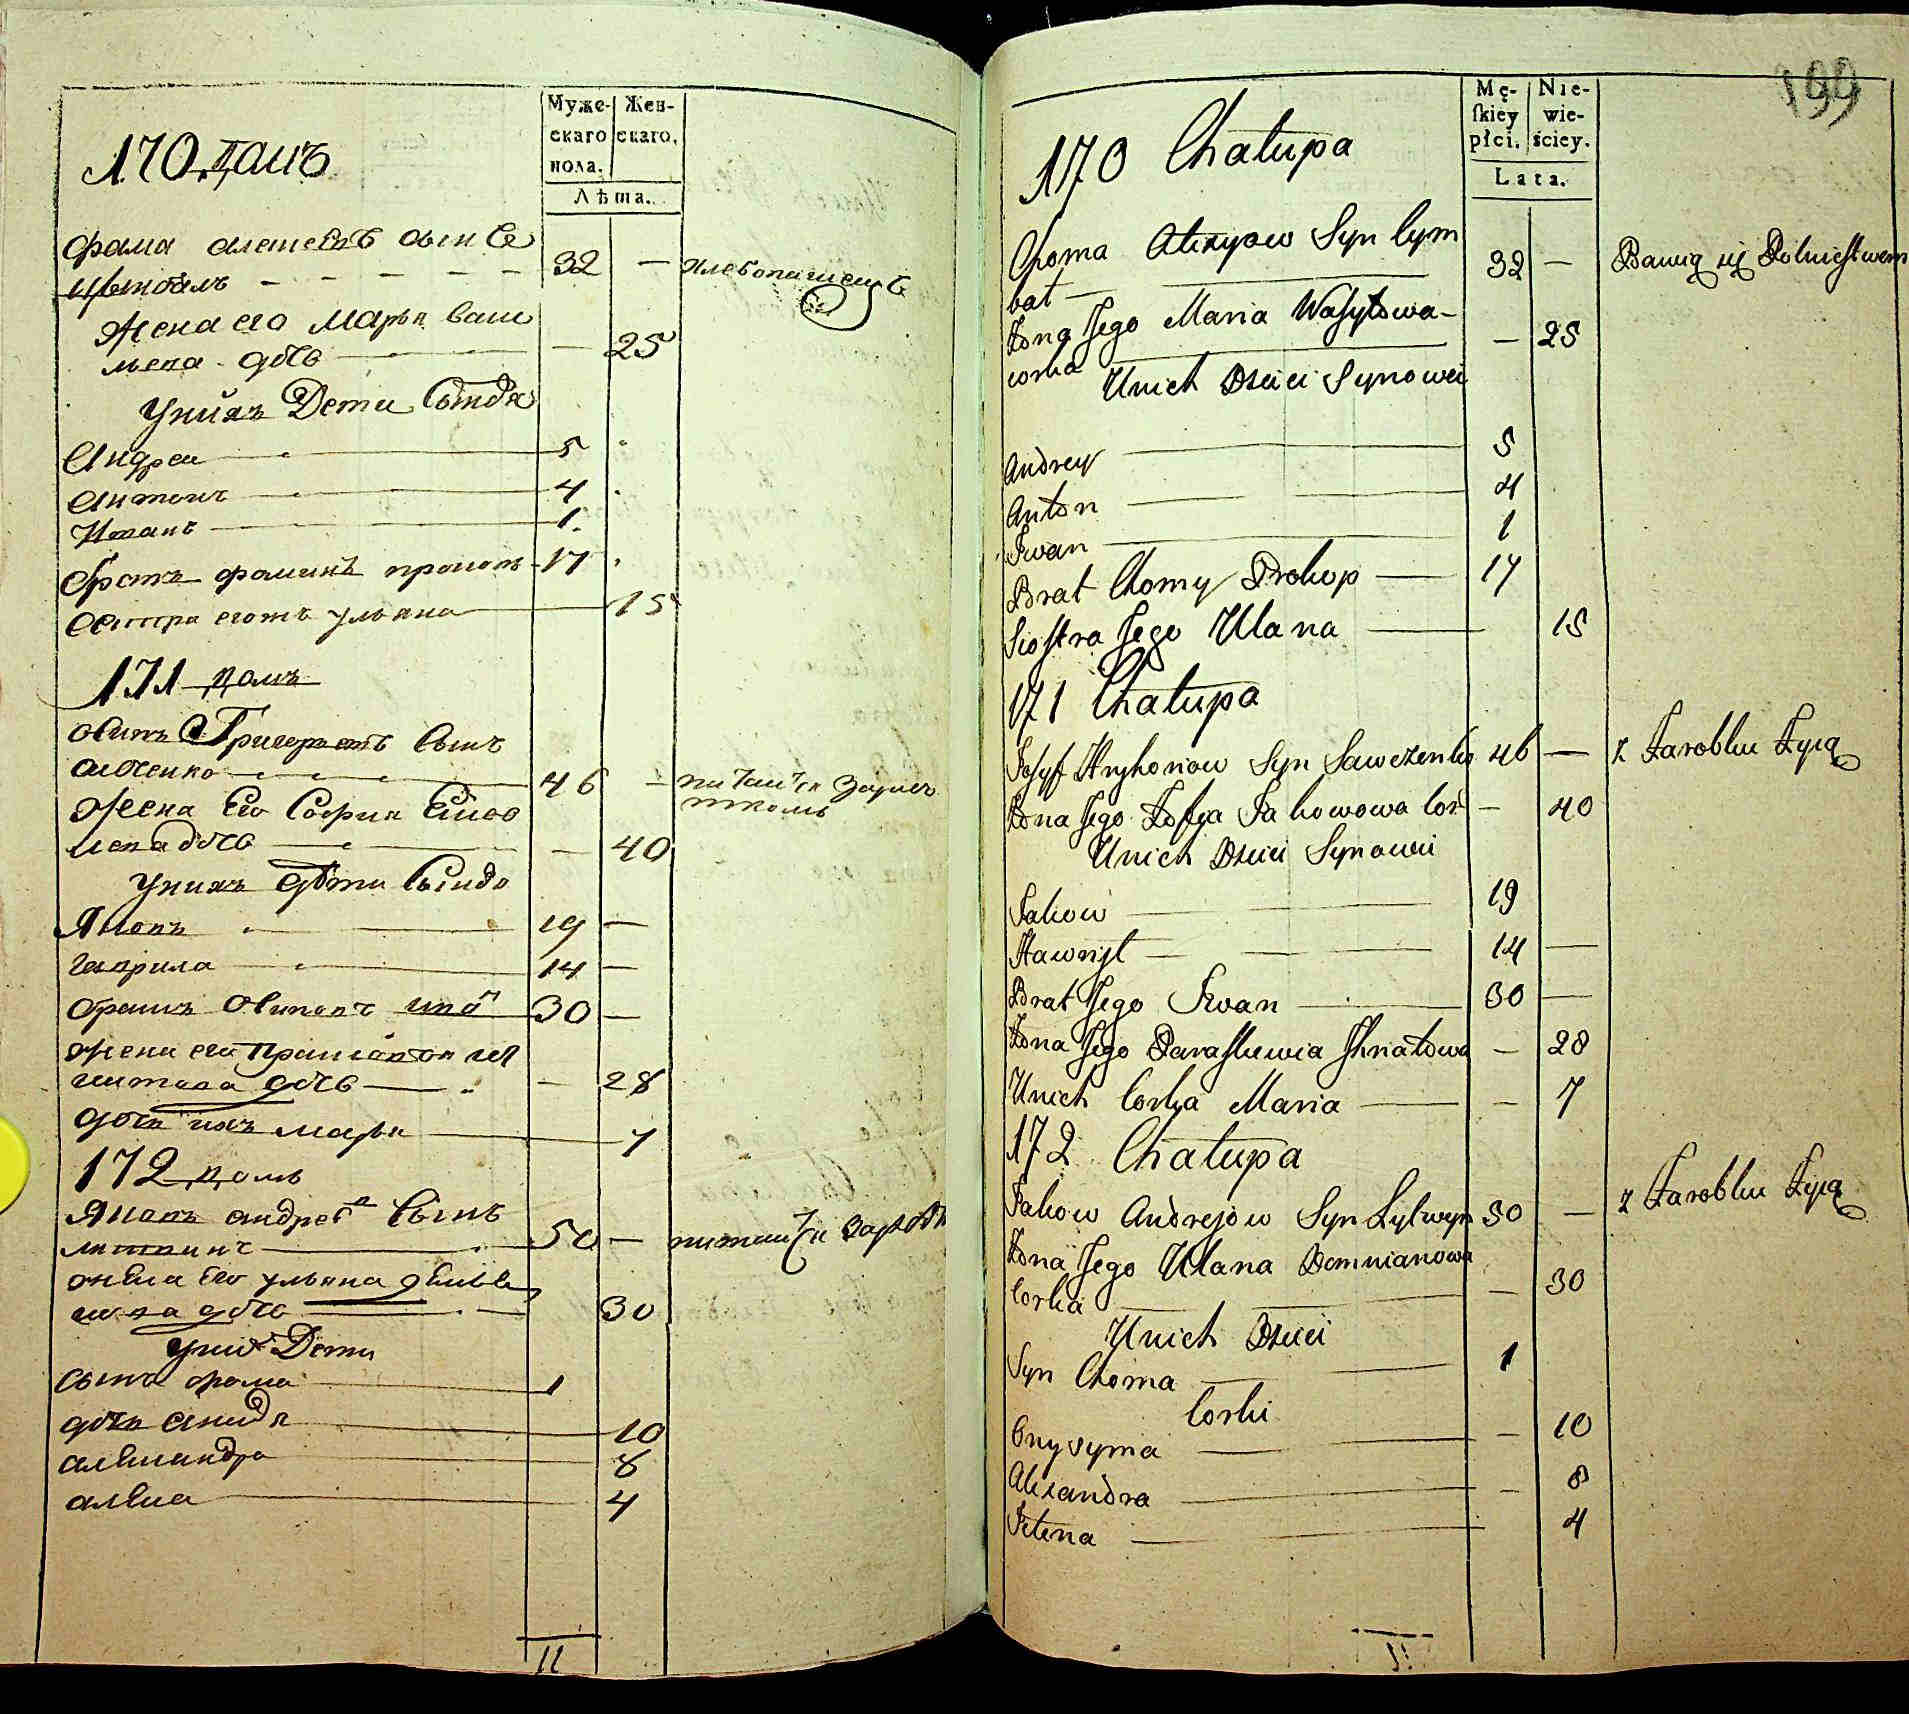 Муже-
скаго
пола.
Жен-
скаго.
Лѣта.
170 домъ
Фома Алексеевъ сынъ
32 —
Жена его Марья Васи
льева дочь — 25
У них Дети Сыновья
Андреи 5
Антонъ 4
Иванъ 1
Братъ Фоминъ Прокопъ 17
Сестра его Ульяна 15
171 домъ
Осипъ Григорьевъ Сынъ
Савченко 46 —
Жена Его София Яков
лева дочь — 40
У нихъ дѣти Сынов
Яковъ 19 —
Гаврила 14 —
братъ Осиповъ Иван 30 —
жена его Прасковья Иг
натова дочь — 28
дочь ихъ Марья 7
172 домъ
Яковъ Андреев Сынъ
Литвинъ 50 —
жена Его Ульяна Демья
нова дочь 30
У них Дети
Сынъ Фома 1
дочь 10
Александра 8
Алена 4
11
199
Mę-
skiey
płci.
Nie-
wie-
ściey.
Lata.
170 Chałupa
Choma Alexyow Syn Cym
bał — 32 — Bawią się Rolnictwem
Żona Jego Maria Wasylowa
corka — 25
Unich Dzieci Synowei
Andrey 5
Anton 4
Iwan 1
Brat Chomy Prokop 17
Siostra Jego Ulana 15
171 Chałupa
Josyf Hryhorow Syn Sawczenko 46 — z Zarobku Żyią
Żona Jego Zofya Jakowowa Cor — 40
Unich Dzieci Synowei
Jakow 19
Hawrył 14 —
Brat Jego Iwan 30 —
Żona Jego Paraskewia Ihnatowa — 28
Unich Corka Maria — 7
172 Chałupa
Jakow Andrejow Syn Lytwyn 50 — z Zarobku Żyią
Żona Jego Ulana Demianowa
Corka — 30
Unich Dzieci
Syn Choma 1
Corki
Onysyma — 10
Alexandra — 8
Jelena 4
11